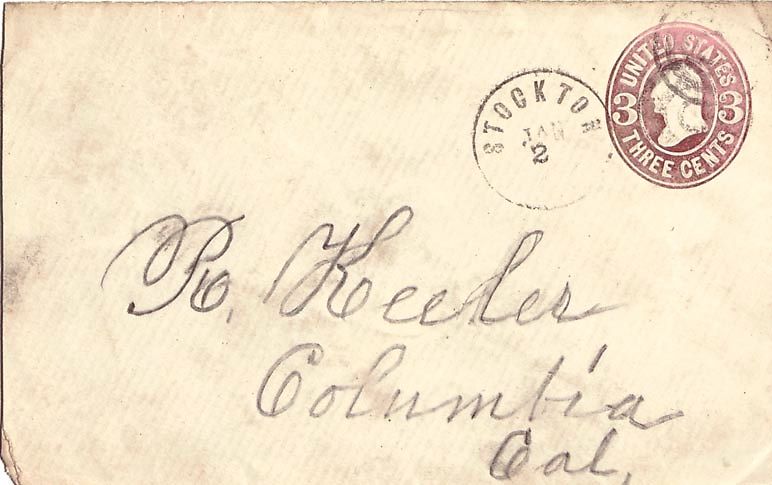 UNITED STATES
3 3
THREE CENTS
STOCKTON
JAN
2
R. Keeler
Columbia
Cal.